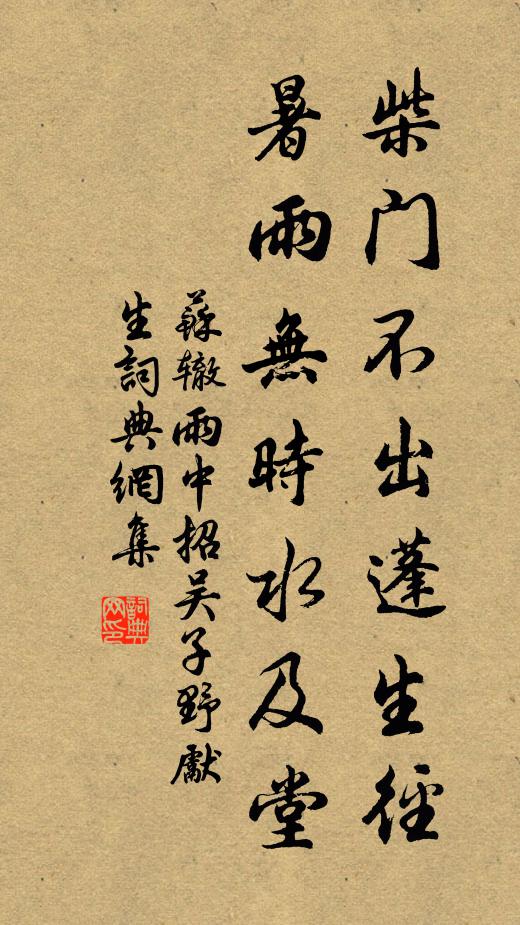 柴门不出蓬生徑
暑雨無時水及堂
蘇辙雨中招吴子野獻
生詞典網集
詞典网印